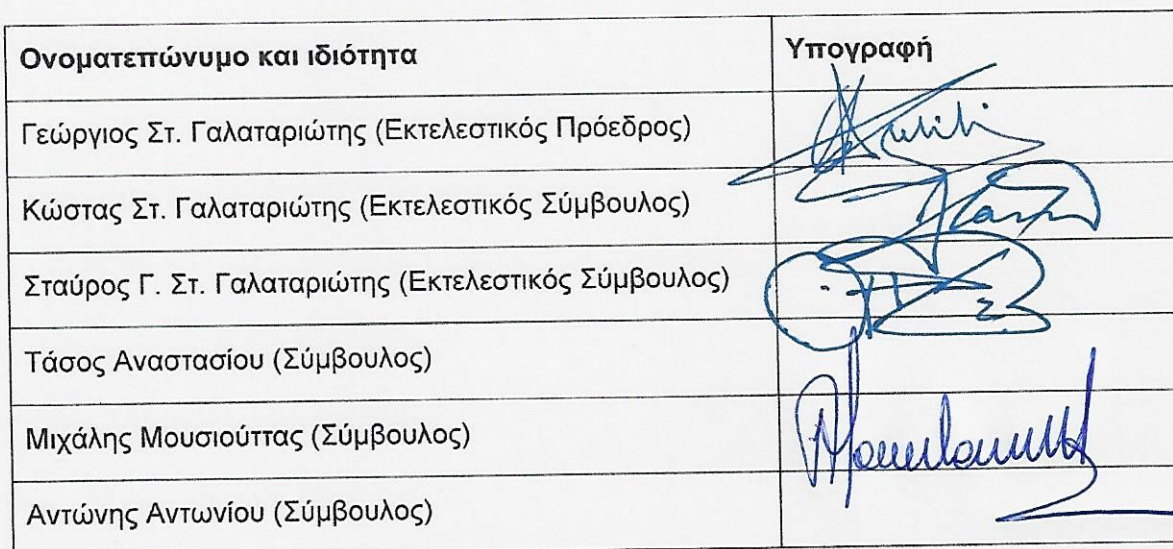 Ονοματεπώνυμο και ιδιότητα Υπογραφή
Γεώργιος Στ. Γαλαταριώτης (Εκτελεστικός Πρόεδρος)
Κώστας Στ. Γαλαταριώτης (Εκτελεστικός Σύμβουλος)
Σταύρος Γ. Στ. Γαλαταριώτης (Εκτελεστικός Σύμβουλος)
Τάσος Αναστασίου (Σύμβουλος)
Μιχάλης Μουσιούττας (Σύμβουλος)
Αντώνης Αντωνίου (Σύμβουλος)